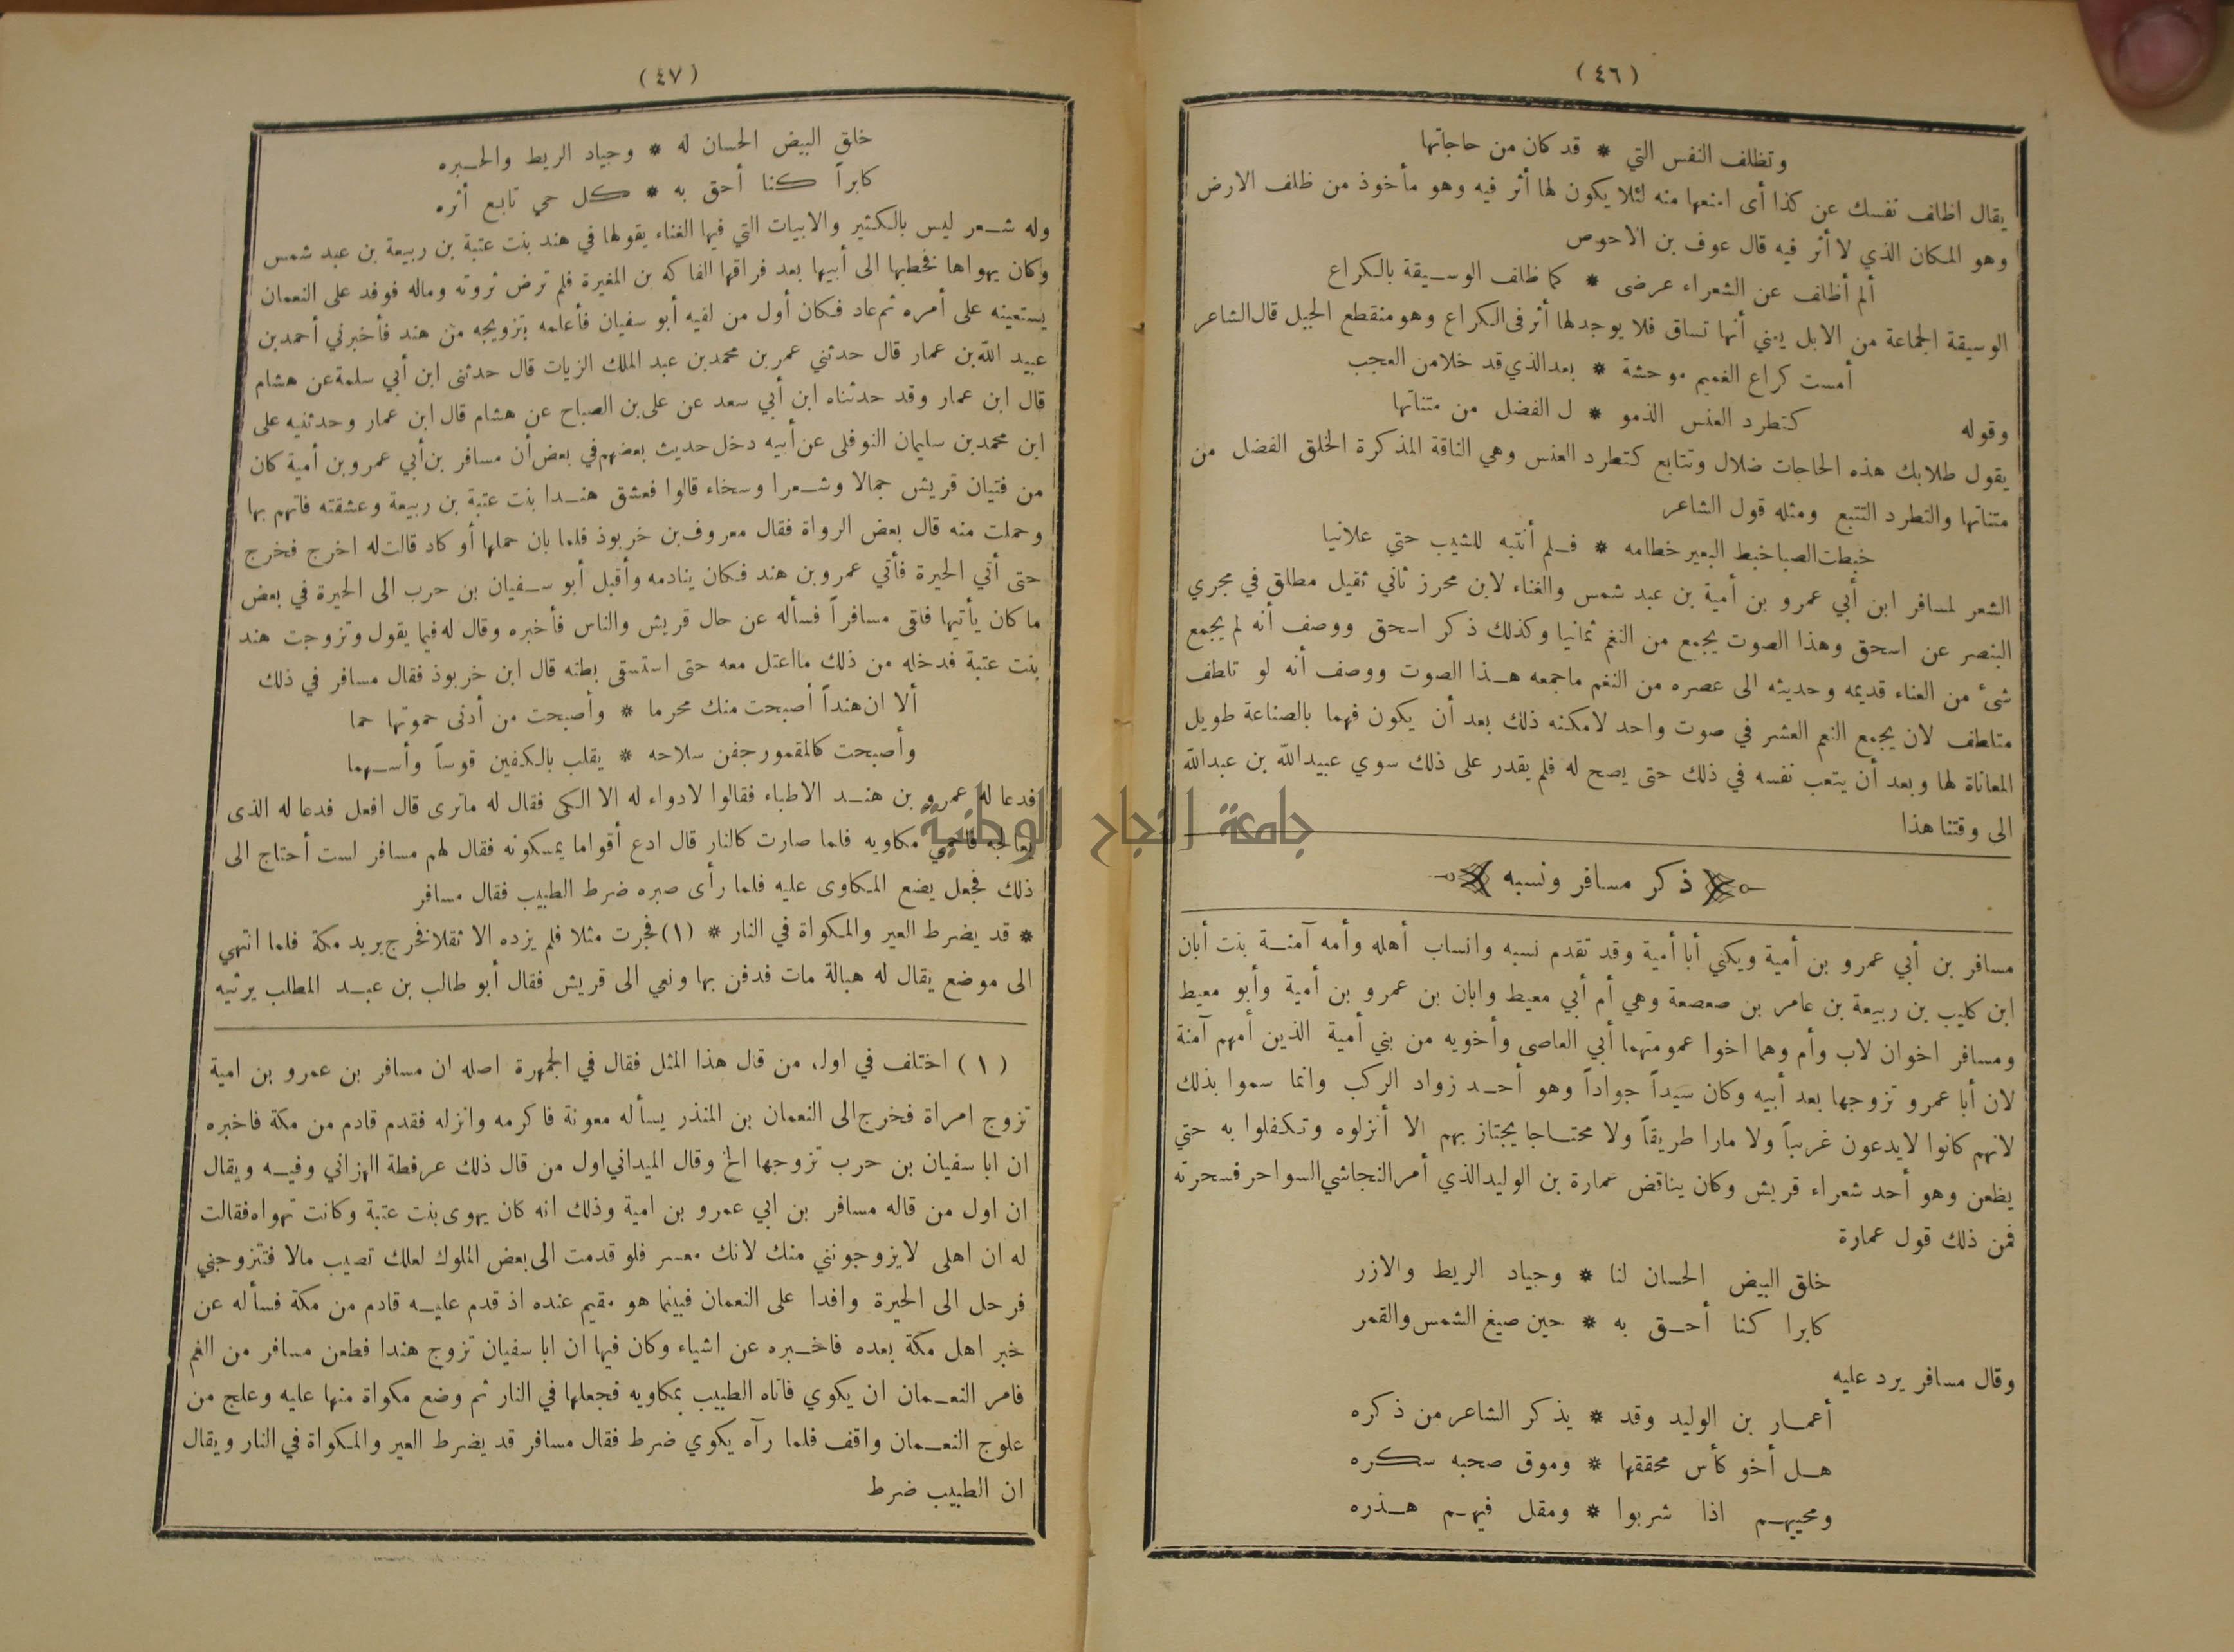 (٤٦)
وتظلف النفس التي * قد كان من حاجاتها
يقال اظلف نفسك عن كذا أى امنعها منه لئلا يكون لها أثر فيه وهو مأخوذ من ظلف الارض
وهو المكان الذي لا أثر فيه قال عوف بن الاحوص
ألم أظلف عن الشعراء عرضى * كما ظلف الوسيقة بالكراع
الوسيقة الجماعة من الابل يعني أنها تساق فلا يوجد لها أثر فى الكراع وهو منقطع الجبل قال الشاعر
أمست كراع الغميم موحشة * بعد الذي قد خلا من العجب
وقوله كتطرد العنس الذمو * ل الفضل من مثناتها
يقول طلابك هذه الحاجات ضلال وتتابع كتطرد العنس وهي الناقة المذكرة الخلق الفضل من
مثناتها والتطرد التتبع ومثله قول الشاعر
خبطت الصبا خبط البعير خطامه * فلم أنتبه للشيب حتي علانيا
الشعر لمسافر ابن أبي عمرو بن أمية بن عبد شمس والغناء لابن محرز ثاني ثقيل مطلق في مجري
البنصر عن اسحق وهذا الصوت يجمع من النغم ثمانيا وكذلك ذكر اسحق ووصف أنه لم يجمع
شئ من الغناء قديمه وحديثه الى عصره من النغم ماجمعه هذا الصوت ووصف أنه لو تلطف
متلطف لان يجمع النغم العشر في صوت واحد لامكنه ذلك بعد أن يكون فهما بالصناعة طويل
المعاناة لها وبعد أن يتعب نفسه في ذلك حتى يصح له فلم يقدر على ذلك سوي عبيد الله بن عبدالله
الى وقتنا هذا
ذكر مسافر ونسبه
مسافر بن أبي عمرو بن أمية ويكني أبا أمية وقد تقدم نسبه وانساب أهله وأمه آمنة بنت أبان
ابن كليب بن ربيعة بن عامر بن صعصعة وهي أم أبي معيط وابان بن عمرو بن أمية وأبو معيط
ومسافر اخوان لاب وأم وهما اخوا عمومتهما أبي العاصى وأخويه من بني أمية الذين أمهم آمنة
لان أبا عمرو تزوجها بعد أبيه وكان سيداً جواداً وهو أحد زواد الركب وانما سموا بذلك
لانهم كانوا لايدعون غريباً ولا مارا طريقاً ولا محتاجا يجتاز بهم الا أنزلوه وتكفلوا به حتي
يظعن وهو أحد شعراء قريش وكان يناقض عمارة بن الوليد الذي أمر النجاشي السواحر فسحرته
فمن ذلك قول عمارة
خلق البيض الحسان لنا * وجياد الريط والازر
كابرا كنا أحق به * حين صيغ الشمس والقمر
وقال مسافر يرد عليه
أعمار بن الوليد وقد * يذكر الشاعر من ذكره
هل أخو كأس محققها * وموق صحبه سكره
ومحييهم اذا شربوا * ومقل فيهم هذره
(٤٧)
خلق البيض الحسان له * وجياد الريط والحبره
كابراً كنا أحق به * كل حي تابع أثره
وله شعر ليس بالكثير والابيات التي فيها الغناء يقولها في هند بنت عتبة بن ربيعة بن عبد شمس
وكان يهواها فخطبها الى أبيها بعد فراقها الفاكه بن المغيرة فلم ترض ثروته وماله فوفد على النعمان
يستعينه على أمره ثم عاد فكان أول من لقيه أبو سفيان فأعلمه بتزويجه من هند فأخبرني أحمد بن
عبيد الله بن عمار قال حدثني عمر بن محمد بن عبد الملك الزيات قال حدثنى ابن أبي سلمة عن هشام
قال ابن عمار وقد حدثناه ابن أبي سعد عن على بن الصباح عن هشام قال ابن عمار وحدثنيه على
ابن محمد بن سليمان النوفلى عن أبيه دخل حديث بعضهم في بعض أن مسافر بن أبي عمرو بن أمية كان
من فتيان قريش جمالا وشعرا وسخاء قالوا فعشق هندا بنت عتبة بن ربيعة وعشقته فاتهم بها
وحملت منه قال بعض الرواة فقال معروف بن خربوذ فلما بان حملها أو كاد قالت له اخرج فخرج
حتى أتي الحيرة فأتي عمرو بن هند فكان ينادمه وأقبل أبو سفيان بن حرب الى الحيرة في بعض
ما كان يأتيها فلقى مسافراً فسأله عن حال قريش والناس فأخبره وقال له فيما يقول وتزوجت هند
بنت عتبة فدخله من ذلك ما اعتل معه حتى استسقى بطنه قال ابن خربوذ فقال مسافر في ذلك
ألا ان هنداً أصبحت منك محرما * وأصبحت من أدنى حموتها حما
وأصبحت كالمقمور جفن سلاحه * يقلب بالكفين قوساً وأسهما
فدعا له عمرو بن هند الاطباء فقالوا لادواء له الا الكى فقال له ماترى قال افعل فدعا له الذى
يعالجه فأحمي مكاويه فلما صارت كالنار قال ادع أقواما يمسكونه فقال لهم مسافر لست أحتاج الى
ذلك فجعل يضع المكاوى عليه فلما رأى صبره ضرط الطبيب فقال مسافر
* قد يضرط العير والمكواة في النار * (١) فجرت مثلا فلم يزده الا ثقلا فخرج يريد مكة فلما انتهي
الى موضع يقال له هبالة مات فدفن بها ونعي الى قريش فقال أبو طالب بن عبد المطلب يرثيه
(١) اختلف في اول من قال هذا المثل فقال في الجمهرة اصله ان مسافر بن عمرو بن امية
تزوج امراة فخرج الى النعمان بن المنذر يسأله معونة فاكرمه وانزله فقدم قادم من مكة فاخبره
ان ابا سفيان بن حرب تزوجها الخ وقال الميداني اول من قال ذلك عرفطة الهزاني وفيه ويقال
ان اول من قاله مسافر بن ابي عمرو بن امية وذلك انه كان يهوى بنت عتبة وكانت تهواه فقالت
له ان اهلى لايزوجونني منك لانك معسر فلو قدمت الى بعض الملوك لعلك تصيب مالا فتتزوجني
فرحل الى الحيرة وافدا على النعمان فبينما هو مقيم عنده اذ قدم عليه قادم من مكة فسأله عن
خبر اهل مكة بعده فاخبره عن اشياء وكان فيها ان ابا سفيان تزوج هندا فطعن مسافر من الغم
فامر النعمان ان يكوي فاتاه الطبيب بمكاويه فجعلها في النار ثم وضع مكواة منها عليه وعلج من
علوج النعمان واقف فلما رآه يكوي ضرط فقال مسافر قد يضرط العير والمكواة في النار ويقال
ان الطبيب ضرط
جامعة النجاح الوطنية